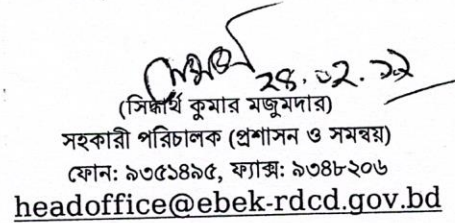 ২৪.০২.১২
(সিদ্ধার্থ কুমার মজুমদার)
সহকারী পরিচালক (প্রশাসন ও সমন্বয়)
ফোন: ৯৩৫১৪৯৫, ফ্যাক্স: ৯৩৪৮২০৬
headoffice@ebek-rdcd.gov.bd